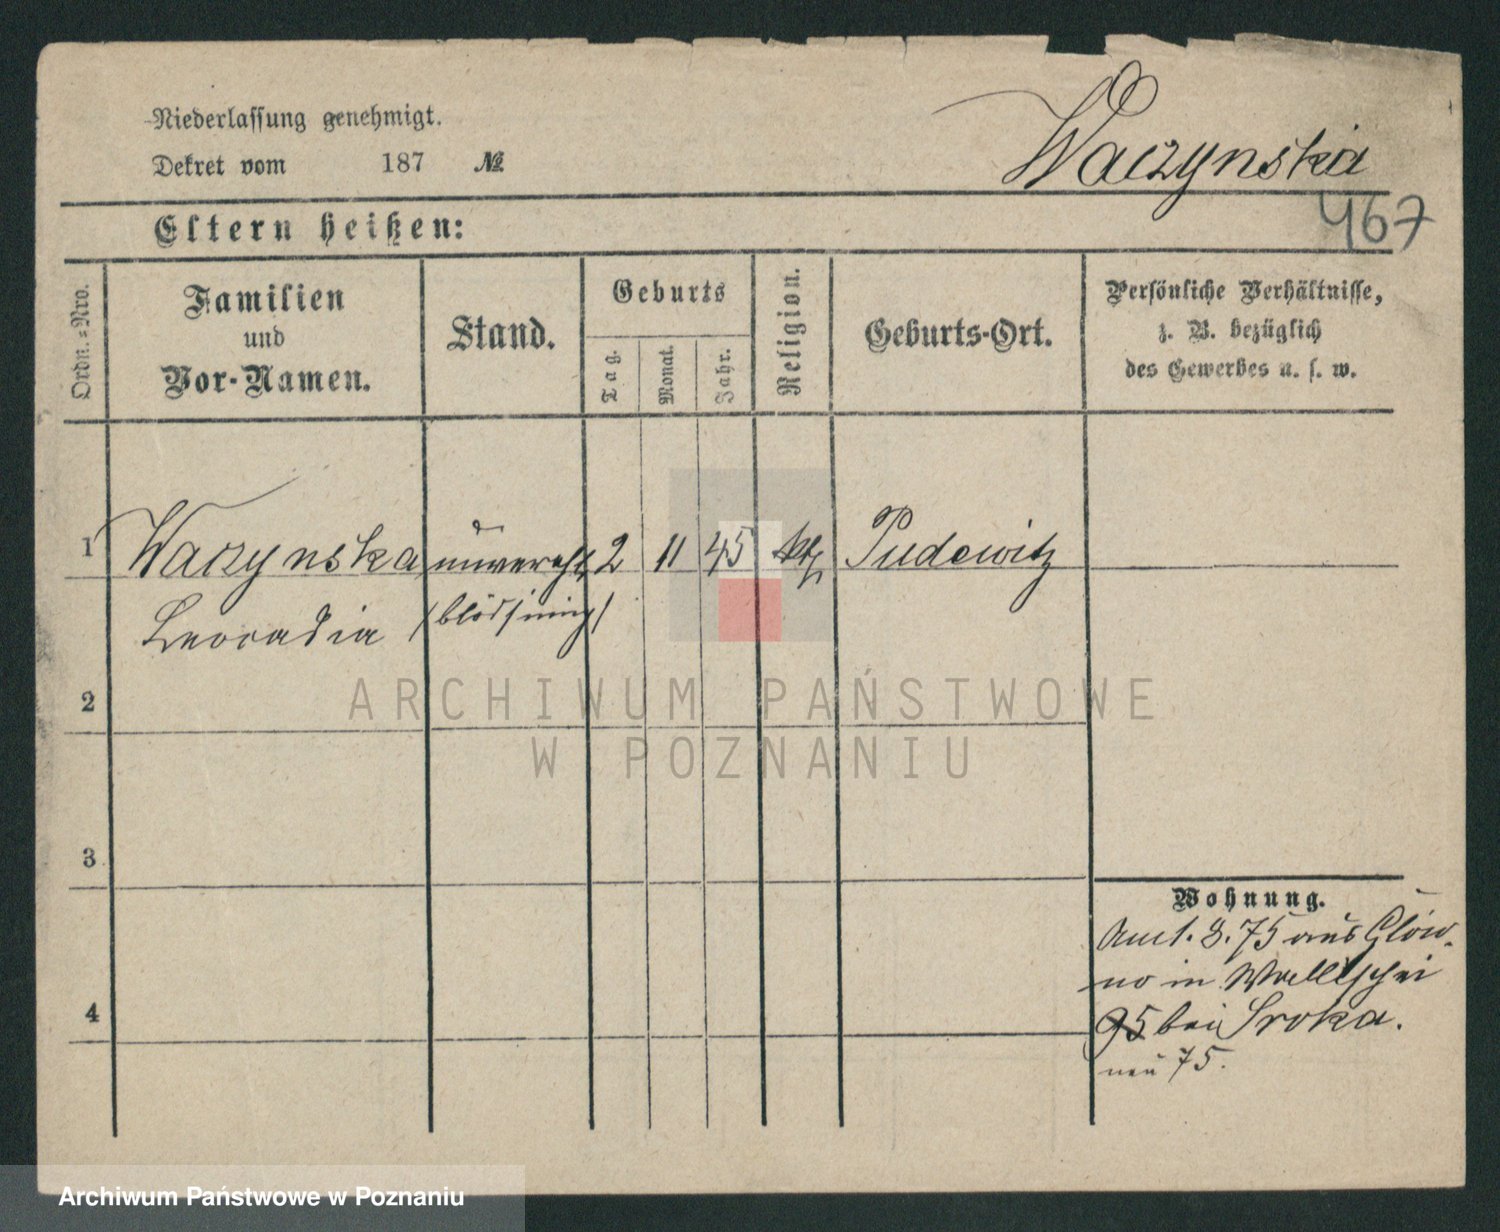 Niederlassung genehmigt.
Dekret vom 187 №
Waczynska
467
Eltern heißen:
Ordn.=Nro.
Familien
und
Vor-Namen.
Stand.
Geburts
Tag.
Monat.
Jahr.
Religion.
Geburts-Ort.
Persönliche Verhältnisse,
z. B. bezüglich
des Gewerbes u. s. w.
1 Waczynska unvereh. 2 11 45 kth Pudewitz
Leocadia (blödsinnig)
2
3
4
Wohnung.
8.75 aus Glów-
no in Wallischei
95 bei Sroka.
neu 75.
ARCHIWUM PAŃSTWOWE
W POZNANIU
Archiwum Państwowe w Poznaniu